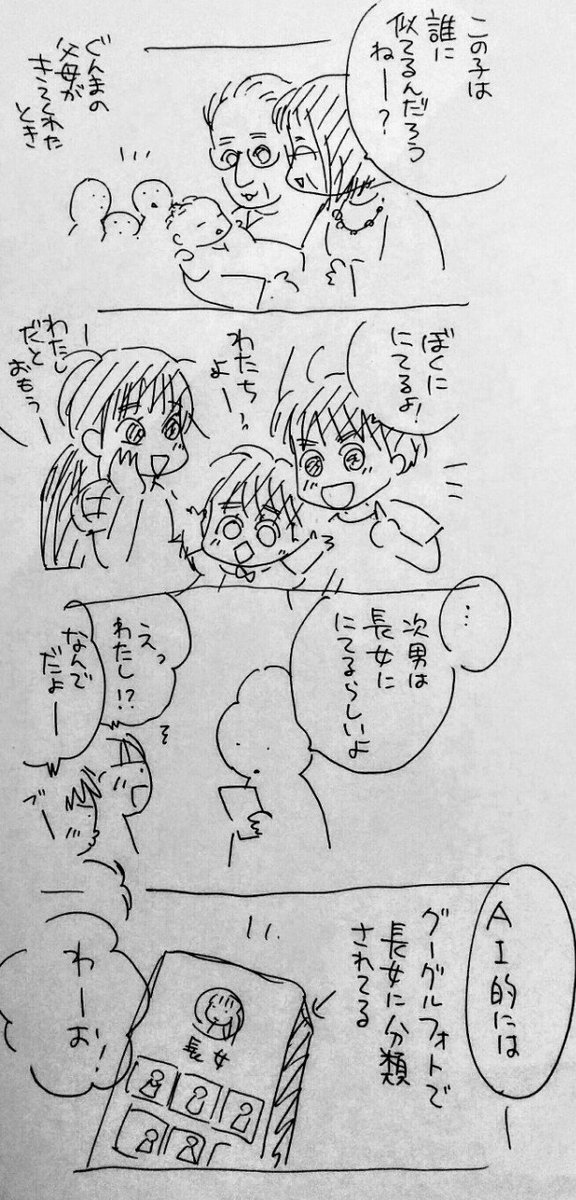 この子は
誰に
似てるんだろう
ねー?
ぐんまの
父母が
きてくれた
とき
ぼくに
にてるよ!
わたち
よーっ
わたし
だと
おもうー
…
次男は
長女に
にてるらしいよ
えっ
わたし!?
なんで
だよー
ブー
AI的にはー
グーグルフォトで
長女に分類
されてる
長女
わーお!